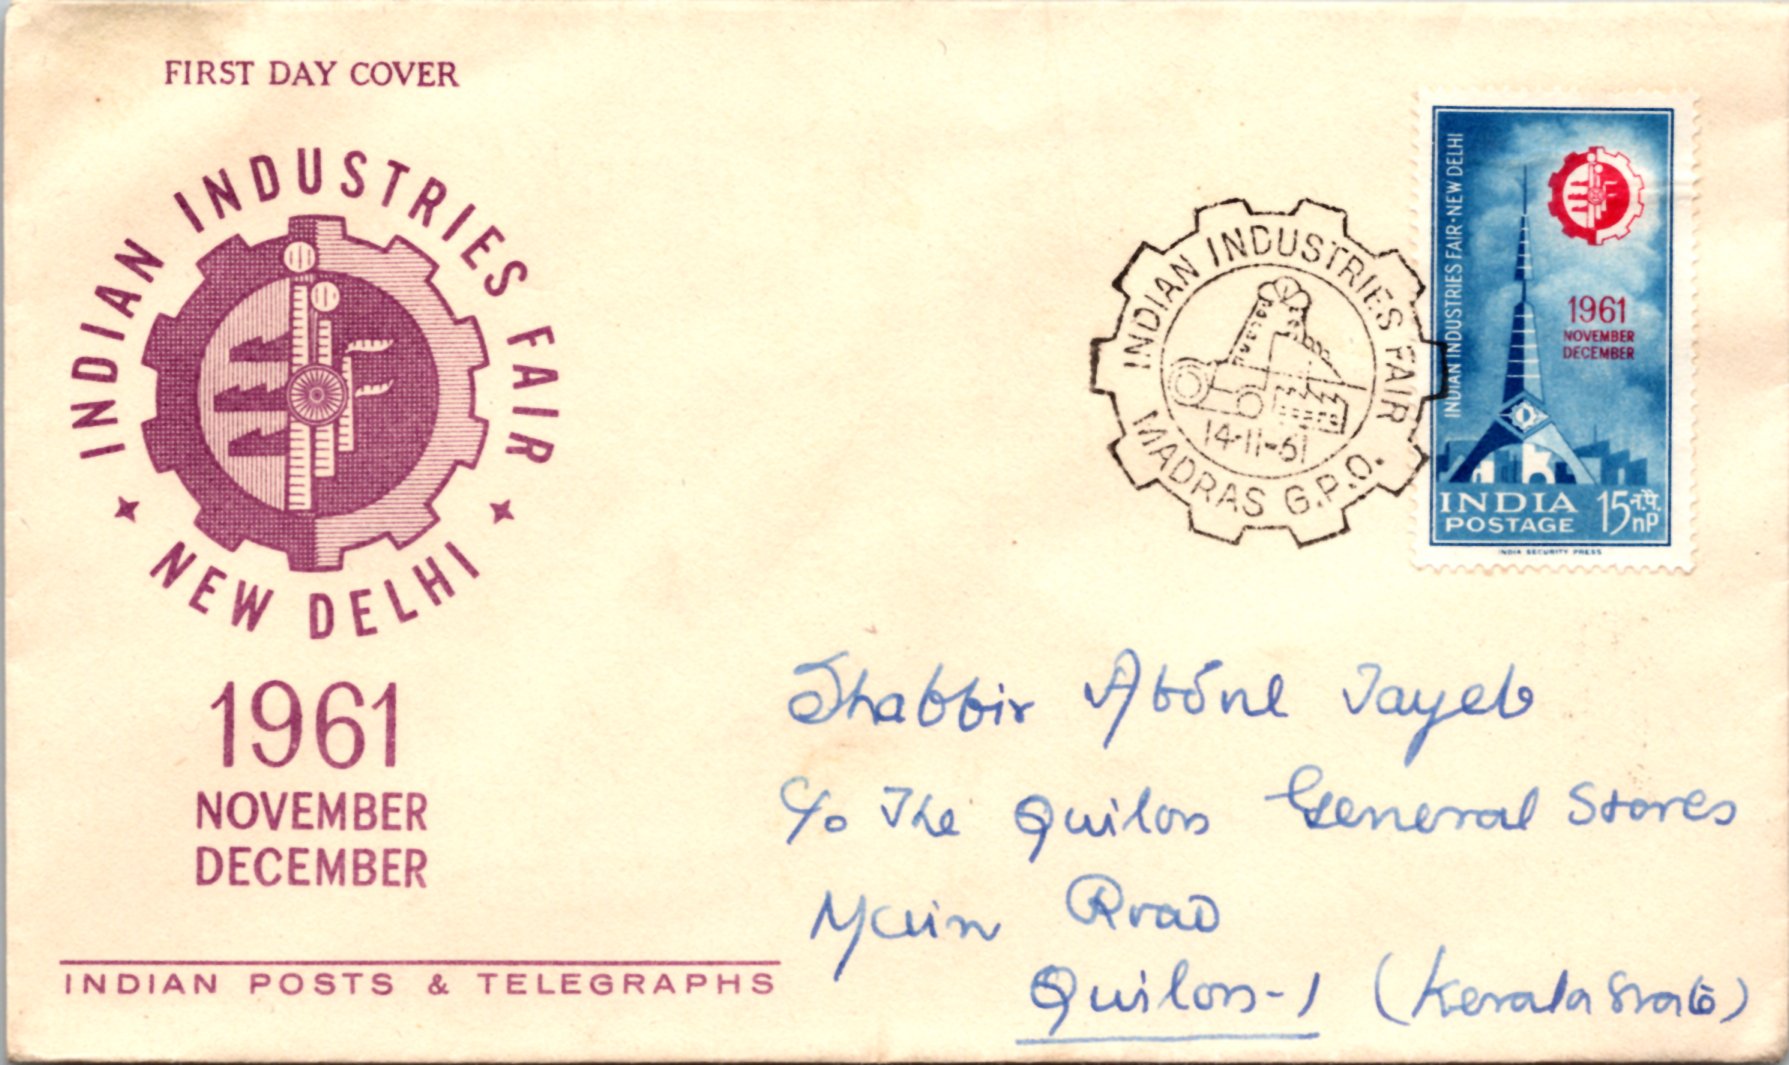 FIRST DAY COVER
INDIAN INDUSTRIES FAIR
NEW DELHI
1961
NOVEMBER
DECEMBER
INDIAN POSTS & TELEGRAPHS
INDIAN INDUSTRIES FAIR
14-11-61
MADRAS G.P.O.
INDIAN INDUSTRIES FAIR·NEW DELHI
1961
NOVEMBER
DECEMBER
INDIA 15 न.पै.
POSTAGE nP
INDIA SECURITY PRESS
Shabbir Abdul Tayeb
C/o The Quilon General Stores
Main Road
Quilon-1 (Kerala State)